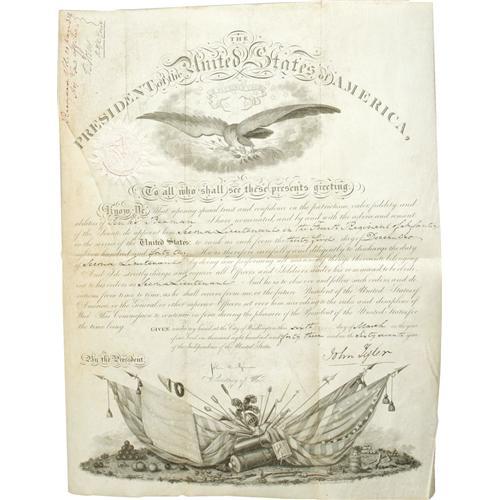 THE
PRESIDENT of the United States of AMERICA,
To all who shall see these presents greeting:
Know Ye, That reposing special trust and confidence in the patriotism, valor, fidelity and
abilities of I have nominated, and by and with the advice and consent
of the Senate do appoint him Second Lieutenant in the Fourth Regiment of Infantry
in the service of the United States: to rank as such from the thirty first day of December
eighteen hundred and forty two. He is therefore carefully and diligently to discharge the duty
of Second Lieutenant by doing and performing all manner of things thereunto belonging.
And I do strictly charge and require all Officers and Soldiers under his command to be obedi-
ent to his orders as Second Lieutenant. And he is to observe and follow such orders and di-
rections from time to time, as he shall receive from me or the future President of the United States of
America, or the General or other superior Officers set over him, according to the rules and discipline of
War. This Commission to continue in force during the pleasure of the President of the United States for
the time being.
GIVEN under my hand at the City of Washington this sixth day of March in the year
of our Lord one thousand eight hundred and forty three and in the Sixty seventh year
of the Independence of the United States.
John Tyler
By the President.
Secretary of War